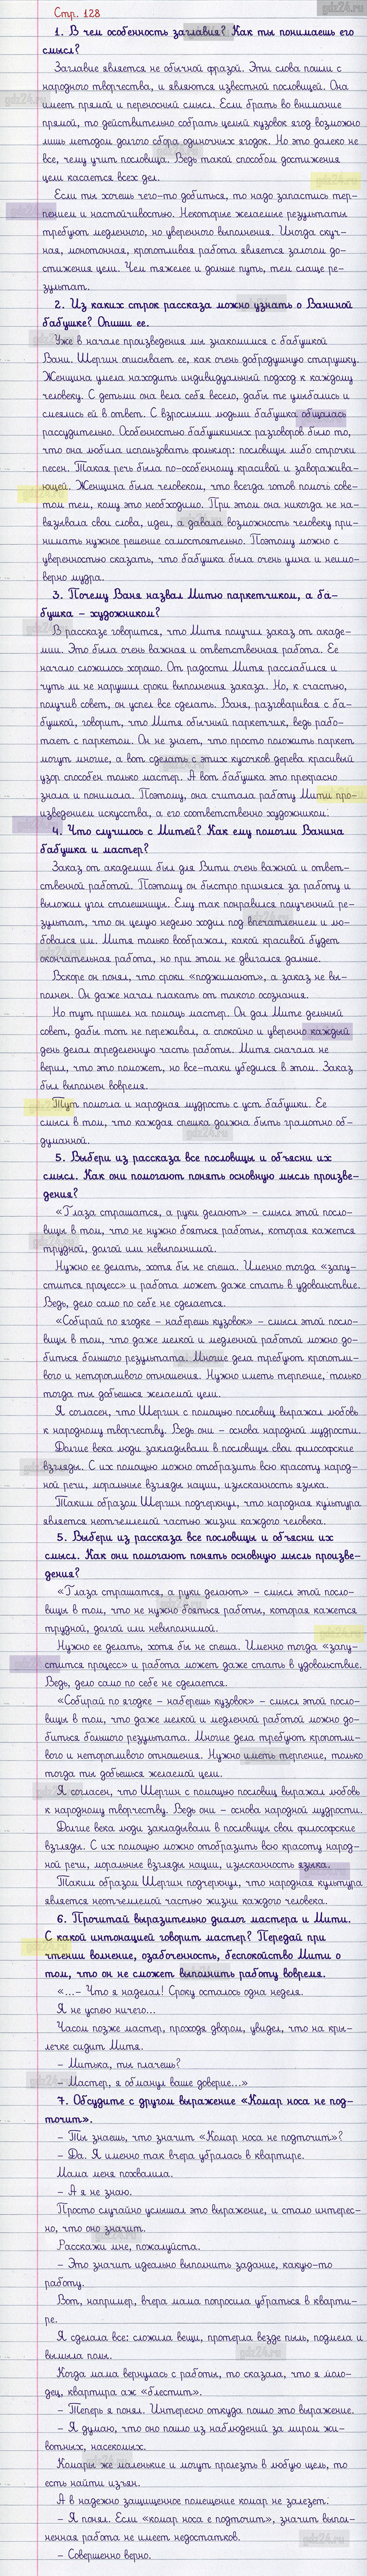 Стр. 128
1. В чем особенность заглавия? Как ты понимаешь его
смысл?
Заглавие является не обычной фразой. Эти слова пошли с
народного творчества, и являются известной пословицей. Она
имеет прямой и переносный смысл. Если брать во внимание
прямой, то действительно собрать целый кузовок ягод возможно
лишь методом долгого сбора одиночных ягодок. Но это далеко не
все, чему учит пословица. Ведь такой способом достижения
цели касается всех дел.
Если ты хочешь чего-то добиться, то надо запастись тер-
пением и настойчивостью. Некоторые желаемые результаты
требуют медленного, но уверенного выполнения. Иногда скуч-
ная, монотонная, кропотливая работа является залогом до-
стижения цели. Чем тяжелее и дольше путь, тем слаще ре-
зультат.
2. Из каких строк рассказа можно узнать о Ваниной
бабушке? Опиши ее.
Уже в начале произведения мы знакомимся с бабушкой
Вани. Шергин описывает ее, как очень добродушную старушку.
Женщина умела находить индивидуальный подход к каждому
человеку. С детьми она вела себя весело, дабы те улыбались и
смеялись ей в ответ. С взрослыми людьми бабушка общалась
рассудительно. Особенностью бабушкиных разговоров было то,
что она любила использовать фольклор: пословицы либо строчки
песен. Такая речь была по-особенному красивой и заворажива-
ющей. Женщина была человеком, что всегда готов помочь сове-
том тем, кому это необходимо. При этом она никогда не на-
вязывала свои слова, идеи, а давала возможность человеку при-
нимать нужное решение самостоятельно. Поэтому можно с
уверенностью сказать, что бабушка была очень умна и неимо-
верно мудра.
3. Почему Ваня назвал Митю паркетчиком, а ба-
бушка – художником?
В рассказе говорится, что Митя получил заказ от акаде-
мии. Это была очень важная и ответственная работа. Ее
начало сложилось хорошо. От радости Митя расслабился и
чуть ли не нарушил сроки выполнения заказа. Но, к счастью,
получив совет, он успел все сделать. Ваня, разговаривая с ба-
бушкой, говорит, что Митя обычный паркетчик, ведь рабо-
тает с паркетом. Он не знает, что просто положить паркет
могут многие, а вот сделать с этих кусочков дерева красивый
узор способен только мастер. А вот бабушка это прекрасно
знала и понимала. Поэтому, она считала работу Мити про-
изведением искусства, а его соответственно художником.
4. Что случилось с Митей? Как ему помогли Ванина
бабушка и мастер?
Заказ от академии был для Вити очень важной и ответ-
ственной работой. Поэтому он быстро принялся за работу и
выложил угол столешницы. Ему так понравился полученный ре-
зультат, что он целую неделю ходил под впечатлением и лю-
бовался им. Митя только воображал, какой красивой будет
окончательная работа, но при этом не двигался дальше.
Вскоре он понял, что сроки «поджимают», а заказ не вы-
полнен. Он даже начал плакать от такого осознания.
Но тут пришел на помощь мастер. Он дал Мите дельный
совет, дабы тот не переживал, а спокойно и уверенно каждый
день делал определенную часть работы. Митя сначала не
верил, что это поможет, но все-таки убедился в этом. Заказ
был выполнен вовремя.
Тут помогла и народная мудрость с уст бабушки. Ее
смысл в том, что каждая спешка должна быть грамотно об-
думанной.
5. Выбери из рассказа все пословицы и объясни их
смысл. Как они помогают понять основную мысль произве-
дения?
«Глаза страшатся, а руки делают» – смысл этой посло-
вицы в том, что не нужно бояться работы, которая кажется
трудной, долгой или невыполнимой.
Нужно ее делать, хотя бы не спеша. Именно тогда «запу-
стится процесс» и работа может даже стать в удовольствие.
Ведь, дело само по себе не сделается.
«Собирай по ягодке – наберешь кузовок» – смысл этой посло-
вицы в том, что даже мелкой и медленной работой можно до-
биться большого результата. Многие дела требуют кропотли-
вого и неторопливого отношения. Нужно иметь терпение, только
тогда ты добьешься желаемой цели.
Я согласен, что Шергин с помощью пословиц выражал любовь
к народному творчеству. Ведь они – основа народной мудрости.
Долгие века люди закладывали в пословицы свои философские
взгляды. С их помощью можно отобразить всю красоту народ-
ной речи, моральные взгляды нации, изысканность языка.
Таким образом Шергин подчеркнул, что народная культура
является неотъемлемой частью жизни каждого человека.
5. Выбери из рассказа все пословицы и объясни их
смысл. Как они помогают понять основную мысль произве-
дения?
«Глаза страшатся, а руки делают» – смысл этой посло-
вицы в том, что не нужно бояться работы, которая кажется
трудной, долгой или невыполнимой.
Нужно ее делать, хотя бы не спеша. Именно тогда «запу-
стится процесс» и работа может даже стать в удовольствие.
Ведь, дело само по себе не сделается.
«Собирай по ягодке – наберешь кузовок» – смысл этой посло-
вицы в том, что даже мелкой и медленной работой можно до-
биться большого результата. Многие дела требуют кропотли-
вого и неторопливого отношения. Нужно иметь терпение, только
тогда ты добьешься желаемой цели.
Я согласен, что Шергин с помощью пословиц выражал любовь
к народному творчеству. Ведь они – основа народной мудрости.
Долгие века люди закладывали в пословицы свои философские
взгляды. С их помощью можно отобразить всю красоту народ-
ной речи, моральные взгляды нации, изысканность языка.
Таким образом Шергин подчеркнул, что народная культура
является неотъемлемой частью жизни каждого человека.
6. Прочитай выразительно диалог мастера и Мити.
С какой интонацией говорит мастер? Передай при
чтении волнение, озабоченность, беспокойство Мити о
том, что он не сможет выполнить работу вовремя.
«...– Что я наделал! Сроку осталось одна неделя.
Я не успею ничего...
Часом позже мастер, проходя двором, увидел, что на кры-
лечке сидит Митя.
– Митька, ты плачешь?
– Мастер, я обманул ваше доверие...»
7. Обсудите с другом выражение «Комар носа не под-
точит».
– Ты знаешь, что значит «Комар носа не подточит»?
– Да. Я именно так вчера убралась в квартире.
Мама меня похвалила.
– А я не знаю.
Просто случайно услышал это выражение, и стало интерес-
но, что оно значит.
Расскажи мне, пожалуйста.
– Это значит идеально выполнить задание, какую-то
работу.
Вот, например, вчера мама попросила убраться в кварти-
ре.
Я сделала все: сложила вещи, протерла везде пыль, подмела и
вымыла полы.
Когда мама вернулась с работы, то сказала, что я моло-
дец, квартира аж «блестит».
– Теперь я понял. Интересно откуда пошло это выражение.
– Я думаю, что оно пошло из наблюдений за миром жи-
вотных, насекомых.
Комары же маленькие и могут пролезть в любую щель, то
есть найти изъян.
А в надежно защищенное помещение комар не залезет.
– Я понял. Если «комар носа е подточит», значит выпол-
ненная работа не имеет недостатков.
– Совершенно верно.